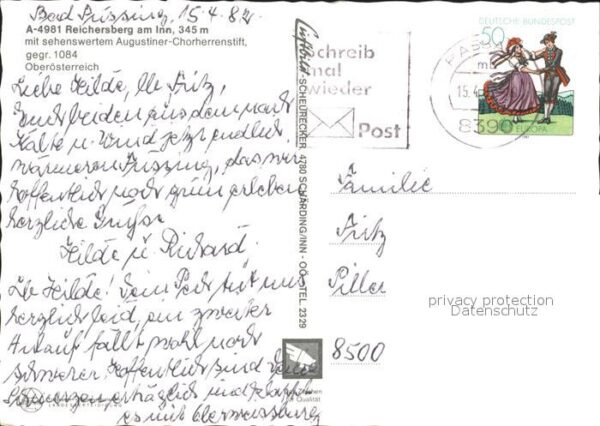 Bad Füssing, 15.4.82
A-4981 Reichersberg am Inn, 345 m
mit sehenswertem Augustiner-Chorherrenstift,
gegr. 1084
Oberösterreich
Liebe Hilde, lb. Fritz,
aus dem nach
Kälte u. Wind jetzt endlich
wärmeren Füssing, das wir
hoffentlich noch grün erleben
herzliche Grüße
Hilde u. Richard.
Lb. Hilde! Dein Pech tut mir
herzlich leid, ein zweiter
Anlauf fällt wohl noch
schwerer. Hoffentlich sind Deine
Schmerzen erträglich und klappt
es mit
Luftbild-SCHEURECKER, 4780 SCHÄRDING/INN - OÖ. TEL. 2329
Schreib
mal
wieder
Post
PASSAU
15.4
8390
DEUTSCHE BUNDESPOST
50
EUROPA
Familie
Fritz
Piller
privacy protection
Datenschutz
8500